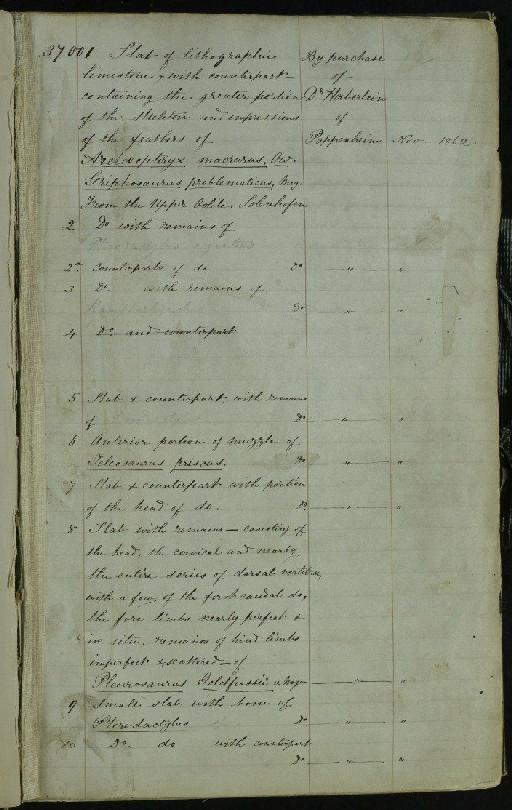 37001 Slab of lithographic By purchase
limestone, with counterpart of
containing the greater portion Dr Häberlein
of the skeleton and impressions of
of the feathers of Pappenheim Nov. 1862
Archæopteryx macrurus, Ow.
Griphosaurus problematicus, Wag.
From the Upper Oolite. Solenhofen
2 Do with remains of
2a Counterparts of do Do " "
3 Do with remains of
Do " "
4 Do and counterpart
5 Slab & counterpart with remains
of Do " "
6 Anterior portion of muzzle of
Teleosaurus priscus. Do " "
7 Slab & counterpart with portion
of the head of do. Do " "
8 Slab with remains – consisting of
the head, the cervical and nearly
the entire series of dorsal vertebræ,
with a few of the first caudal do,
the fore limbs nearly perfect &
in situ, remains of hind limbs
imperfect & scattered – of
Pleurosaurus Goldfussii " "
9 Small slab with bone of
Pterodactylus Do " "
10 Do do with counterpart
Do " "